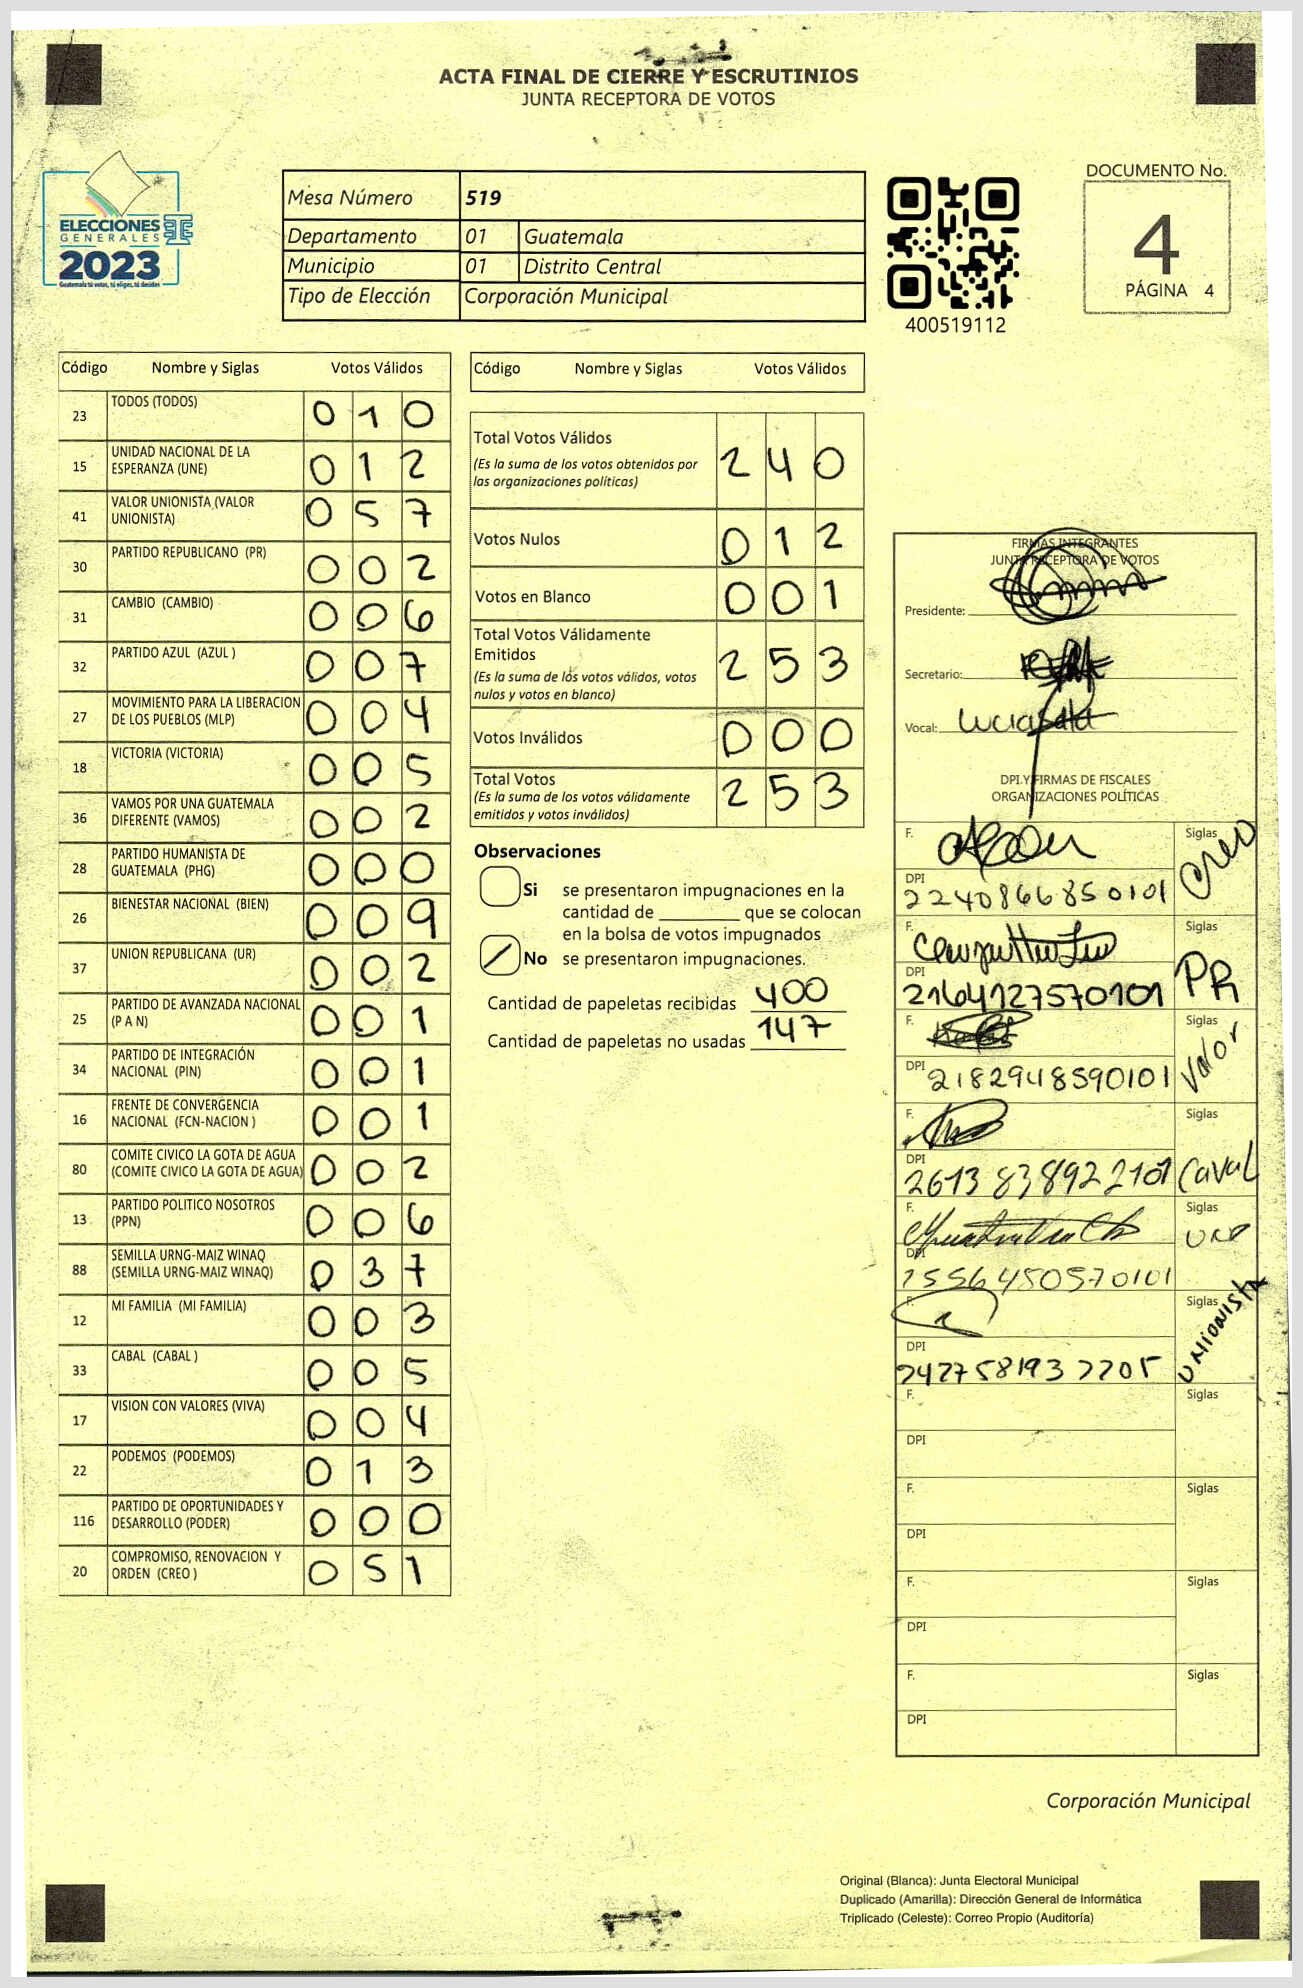 ACTA FINAL DE CIERRE Y ESCRUTINIOS
JUNTA RECEPTORA DE VOTOS
ELECCIONES
GENERALES
2023
Guatemala tú votas, tú eliges, tú decides
Mesa Número 519
Departamento 01 Guatemala
Municipio 01 Distrito Central
Tipo de Elección Corporación Municipal
400519112
DOCUMENTO No.
4
PÁGINA 4
Código Nombre y Siglas Votos Válidos
23 TODOS (TODOS) 0 1 0
15 UNIDAD NACIONAL DE LA
ESPERANZA (UNE) 0 1 2
41 VALOR UNIONISTA (VALOR
UNIONISTA) 0 5 7
30 PARTIDO REPUBLICANO (PR) 0 0 2
31 CAMBIO (CAMBIO) 0 0 6
32 PARTIDO AZUL (AZUL ) 0 0 7
27 MOVIMIENTO PARA LA LIBERACION
DE LOS PUEBLOS (MLP) 0 0 4
18 VICTORIA (VICTORIA) 0 0 5
36 VAMOS POR UNA GUATEMALA
DIFERENTE (VAMOS) 0 0 2
28 PARTIDO HUMANISTA DE
GUATEMALA (PHG) 0 0 0
26 BIENESTAR NACIONAL (BIEN) 0 0 9
37 UNION REPUBLICANA (UR) 0 0 2
25 PARTIDO DE AVANZADA NACIONAL
(P A N) 0 0 1
34 PARTIDO DE INTEGRACIÓN
NACIONAL (PIN) 0 0 1
16 FRENTE DE CONVERGENCIA
NACIONAL (FCN-NACION ) 0 0 1
80 COMITE CIVICO LA GOTA DE AGUA
(COMITE CIVICO LA GOTA DE AGUA) 0 0 2
13 PARTIDO POLITICO NOSOTROS
(PPN) 0 0 6
88 SEMILLA URNG-MAIZ WINAQ
(SEMILLA URNG-MAIZ WINAQ) 0 3 7
12 MI FAMILIA (MI FAMILIA) 0 0 3
33 CABAL (CABAL ) 0 0 5
17 VISION CON VALORES (VIVA) 0 0 4
22 PODEMOS (PODEMOS) 0 1 3
116 PARTIDO DE OPORTUNIDADES Y
DESARROLLO (PODER) 0 0 0
20 COMPROMISO, RENOVACION Y
ORDEN (CREO ) 0 5 1
Código Nombre y Siglas Votos Válidos
Total Votos Válidos
(Es la suma de los votos obtenidos por
las organizaciones políticas) 2 4 0
Votos Nulos 0 1 2
Votos en Blanco 0 0 1
Total Votos Válidamente
Emitidos
(Es la suma de los votos válidos, votos
nulos y votos en blanco) 2 5 3
Votos Inválidos 0 0 0
Total Votos
(Es la suma de los votos válidamente
emitidos y votos inválidos) 2 5 3
Observaciones
Si se presentaron impugnaciones en la
cantidad de ________ que se colocan
en la bolsa de votos impugnados
No se presentaron impugnaciones.
Cantidad de papeletas recibidas 400
Cantidad de papeletas no usadas 147
FIRMAS INTEGRANTES
JUNTA RECEPTORA DE VOTOS
Presidente:
Secretario:
Vocal:
DPI Y FIRMAS DE FISCALES
ORGANIZACIONES POLÍTICAS
F. Siglas Creo
DPI 2240866850101
F. Siglas PR
DPI 2164127570101
F. Siglas Valor
DPI 2182948590101
F. Siglas Caval
DPI 2613838922101
F. Siglas une
DPI
F. Siglas Unionista
DPI
F. Siglas
DPI
F. Siglas
DPI
F. Siglas
DPI
F. Siglas
DPI
Corporación Municipal
Original (Blanca): Junta Electoral Municipal
Duplicado (Amarilla): Dirección General de Informática
Triplicado (Celeste): Correo Propio (Auditoría)